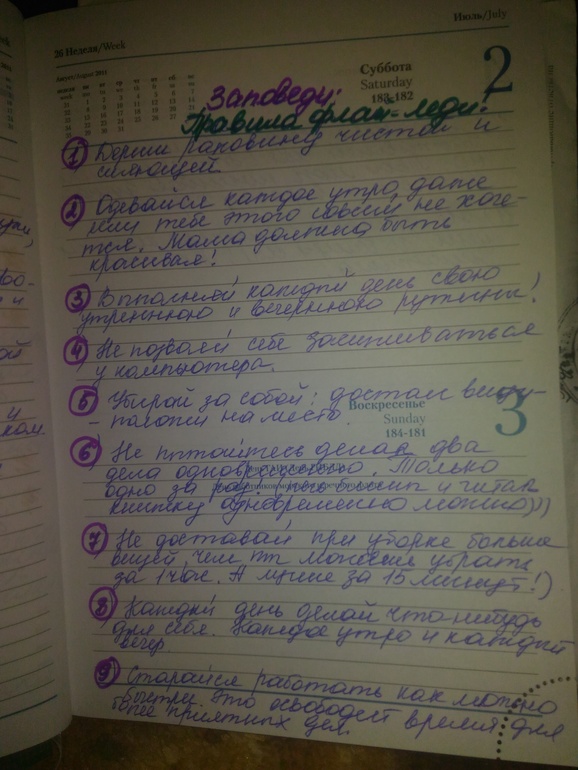 26 Неделя/Week
Июль/July
Август/August 2011
Суббота
2
Saturday
183-182
Заповеди:
Правила флай-леди:
1 Держи раковину чистой и
сияющей.
2 Одевайся каждое утро, даже
если тебе этого совсем не хоче-
тся. Мама должна быть
красивая!
3 Выполняй каждый день свою
утреннюю и вечернюю рутины!
4 Не позволяй себе засиживаться
у компьютера.
5 Убирай за собой: достал вещь-
- положи на место.
Воскресенье
3
Sunday
184-181
6 Не пытайтесь делать два
дела одновременно. Только
одно за раз. и читать
книжку одновременно можно)))
7 Не доставай при уборке больше
вещей чем ты можешь убрать
за 1 час. А лучше за 15 минут!)
8 Каждый день делай что-нибудь
для себя. Каждое утро и каждый
вечер.
9 Старайся работать как можно
быстрее. Это освободит время для
более приятных дел.